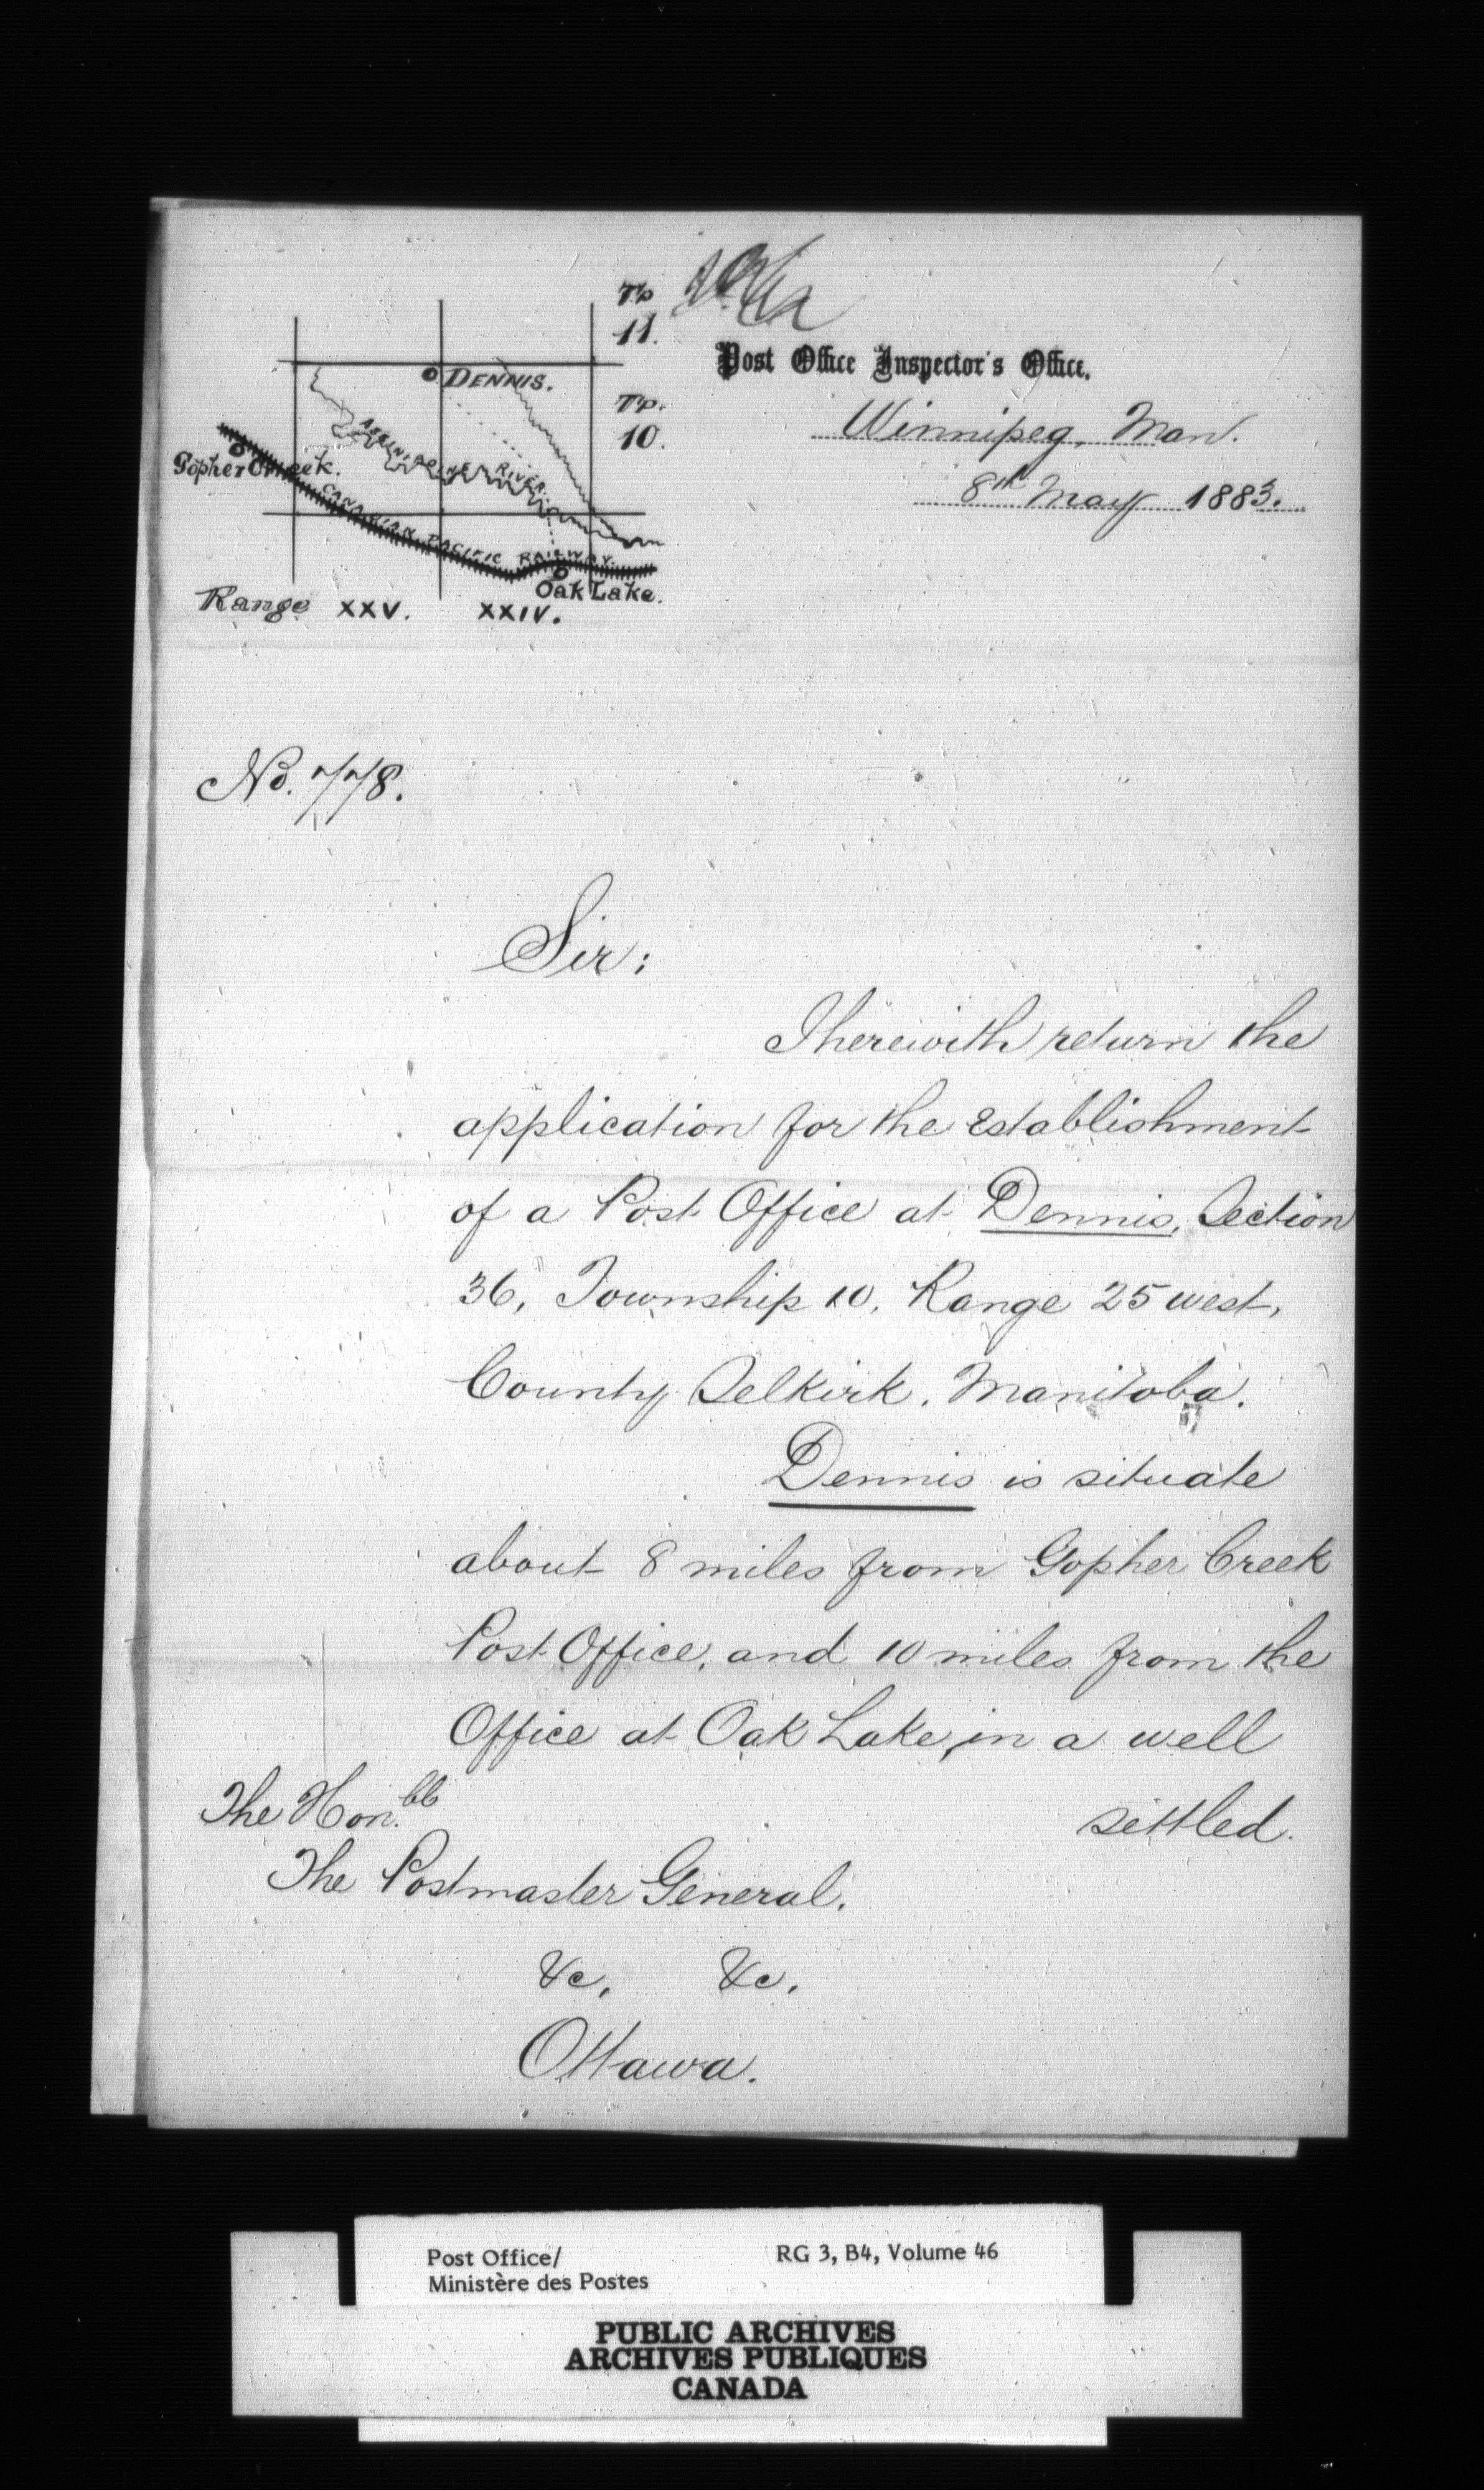 Tp
11.
Post Office Inspector's Office.
Winnipeg, Man.
8th May 1883.
DENNIS.
Tp.
10.
ASSINIBOINE RIVER.
Gopher Creek.
CANADIAN PACIFIC RAILWAY.
Oak Lake.
Range XXV. XXIV.
No. 778.
Sir:
I herewith return the
application for the establishment
of a Post Office at Dennis, Section
36, Township 10, Range 25 west,
County Selkirk, Manitoba.
Dennis is situate
about 8 miles from Gopher Creek
Post Office, and 10 miles from the
Office at Oak Lake, in a well
settled.
The Hon.ble
The Postmaster General.
&c, &c.
Ottawa.
Post Office/
Ministère des Postes
RG 3, B4, Volume 46
PUBLIC ARCHIVES
ARCHIVES PUBLIQUES
CANADA